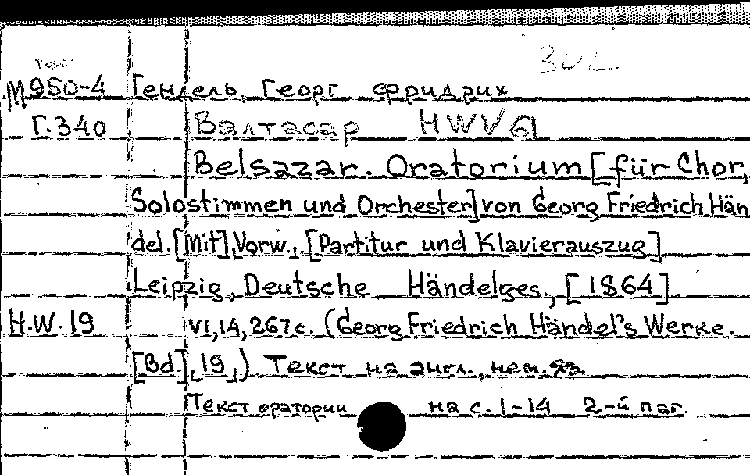 М950-4 Гендель, Георг Фридрих
Г.340 Валтасар HWV 61
Belsazar. Oratorium [für Chor,
Solostimmen und Orchester] von Georg Friedrich Hän
del. [Mit] Vorw., [Partitur und Klavierauszug]
Leipzig, Deutsche Händelges., [1864]
H.W.19 VI,14,267c. (Georg Friedrich Händel's Werke.
[Bd.],19,) Текст на англ., нем. яз.
Текст оратории на с. 1-14 2-й паг.